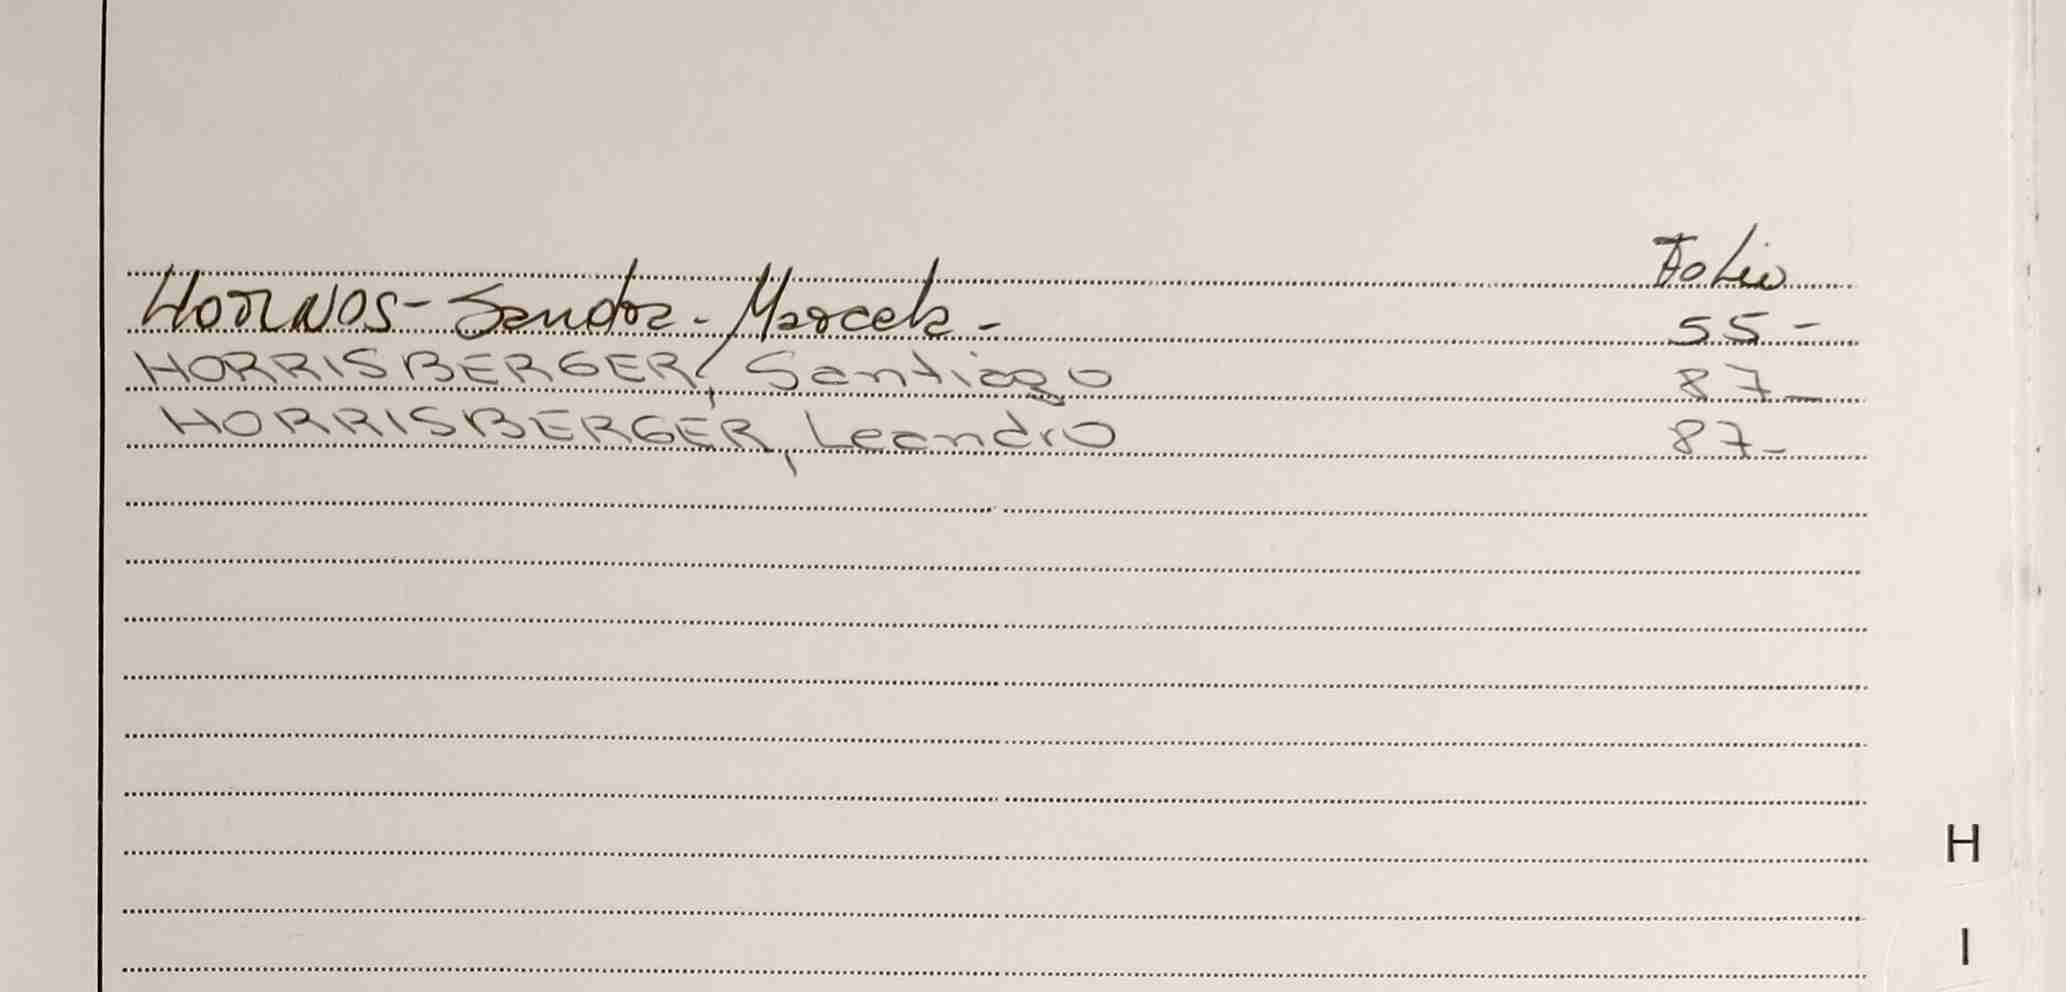 Folio
HORNOS - Sandra - Marcela - 55 -
HORRISBERGER, Santiago 87 -
HORRISBERGER, Leandro 87 -
H
I